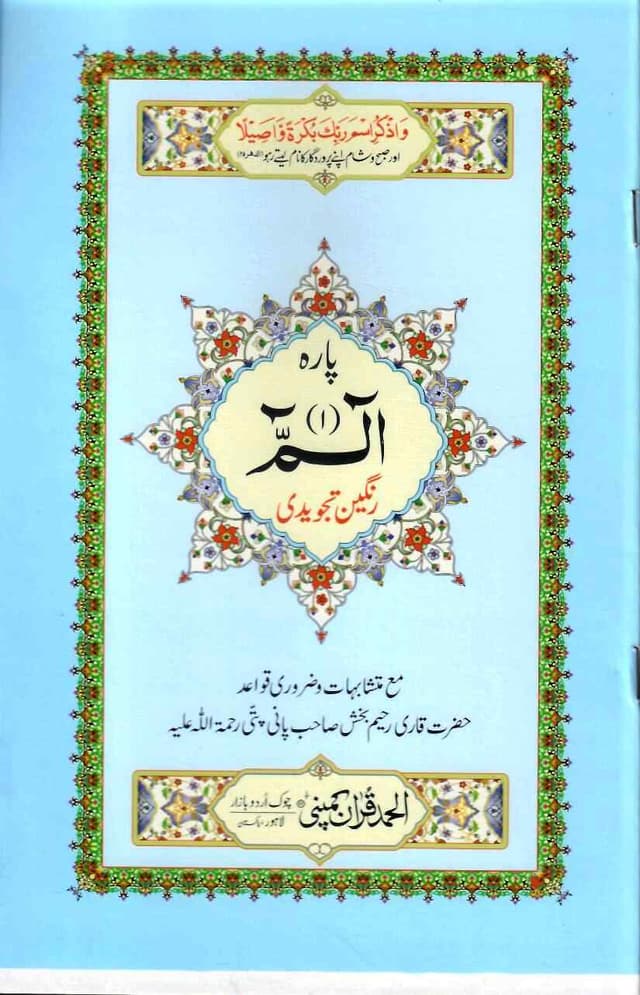 وَاذْكُرِ اسْمَ رَبِّكَ بُكْرَةً وَّاَصِيْلًا
اور صبح و شام اپنے پروردگار کا نام لیتے رہو
پارہ
(۱)
الٓـمّٓ
رنگین تجویدی
مع متشابہات و ضروری قواعد
حضرت قاری رحیم بخش صاحب پانی پتی رحمۃ اللہ علیہ
الحمد قرآن کمپنی
چوک اُردو بازار
لاہور، پاکستان